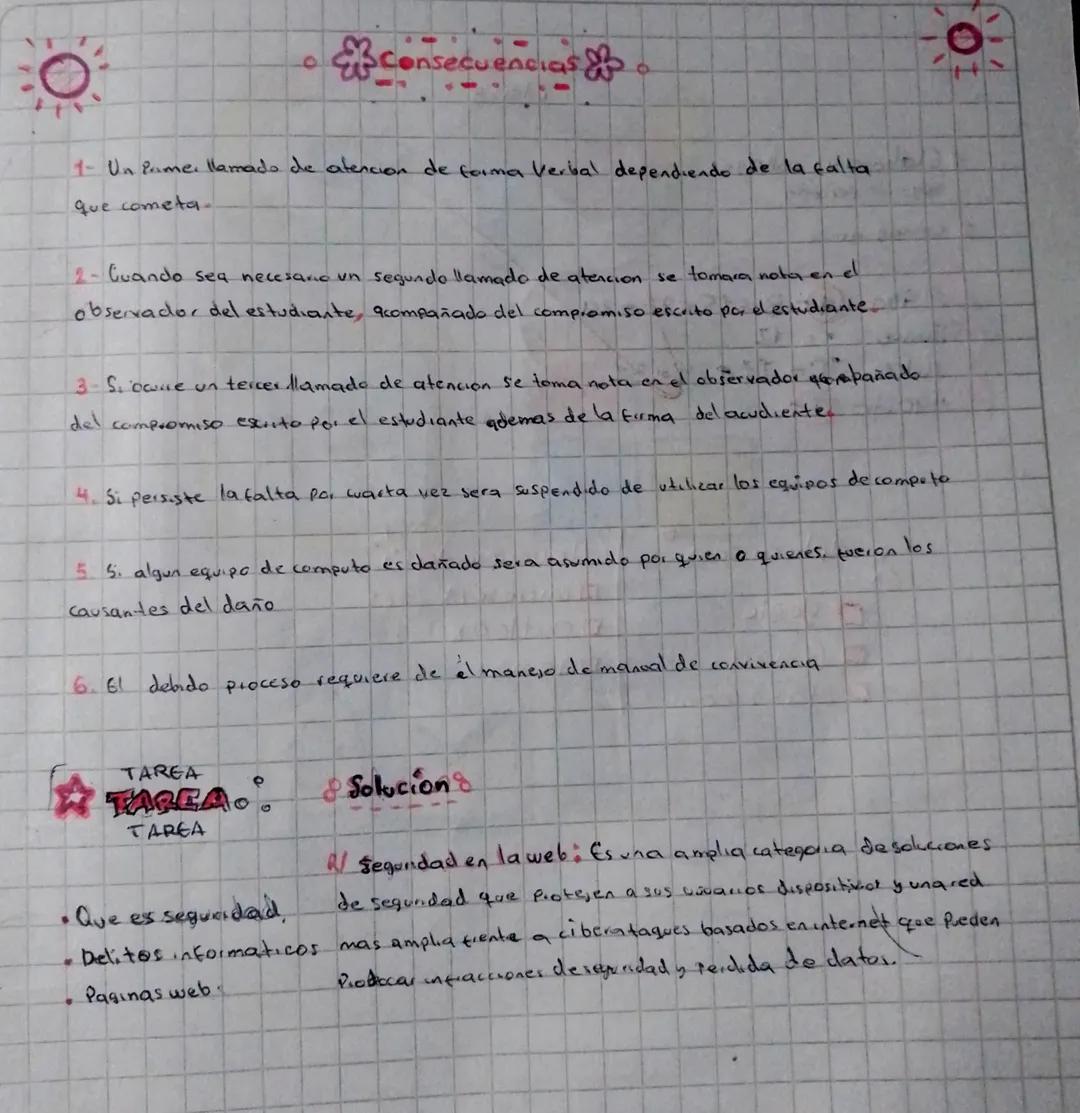 Consecuencias
1- Un Primer llamado de atencion de forma Verbal dependiendo de la falta
que cometa.
2- Cuando sea necesario un segundo llamado de atencion se tomara nota en el
observador del estudiante, acompañado del compromiso escrito por el estudiante.
3- Si ocurre un tercer llamado de atención se toma nota en el observador acompañado
del compromiso escrito por el estudiante ademas de la firma del acudiente.
4. Si persiste la falta por cuarta vez sera suspendido de utilizar los equipos de computo
5 Si algun equipo de computo es dañado sera asumido por quien o quienes. fueron los
causantes del daño
6. El debido proceso requiere de él manejo de manual de convivencia
TAREA
TAREA
TAREA
Solución
R/ Seguridad en la web: Es una amplia categoria de soluciones
de seguridad que Protejen a sus usuarios dispositivos y una red
mas amplia frente a ciberataques basados en internet que Pueden
Provocar infracciones de seguridad y perdida de datos.
• Que es seguridad,
• Delitos informaticos
• Paginas web.